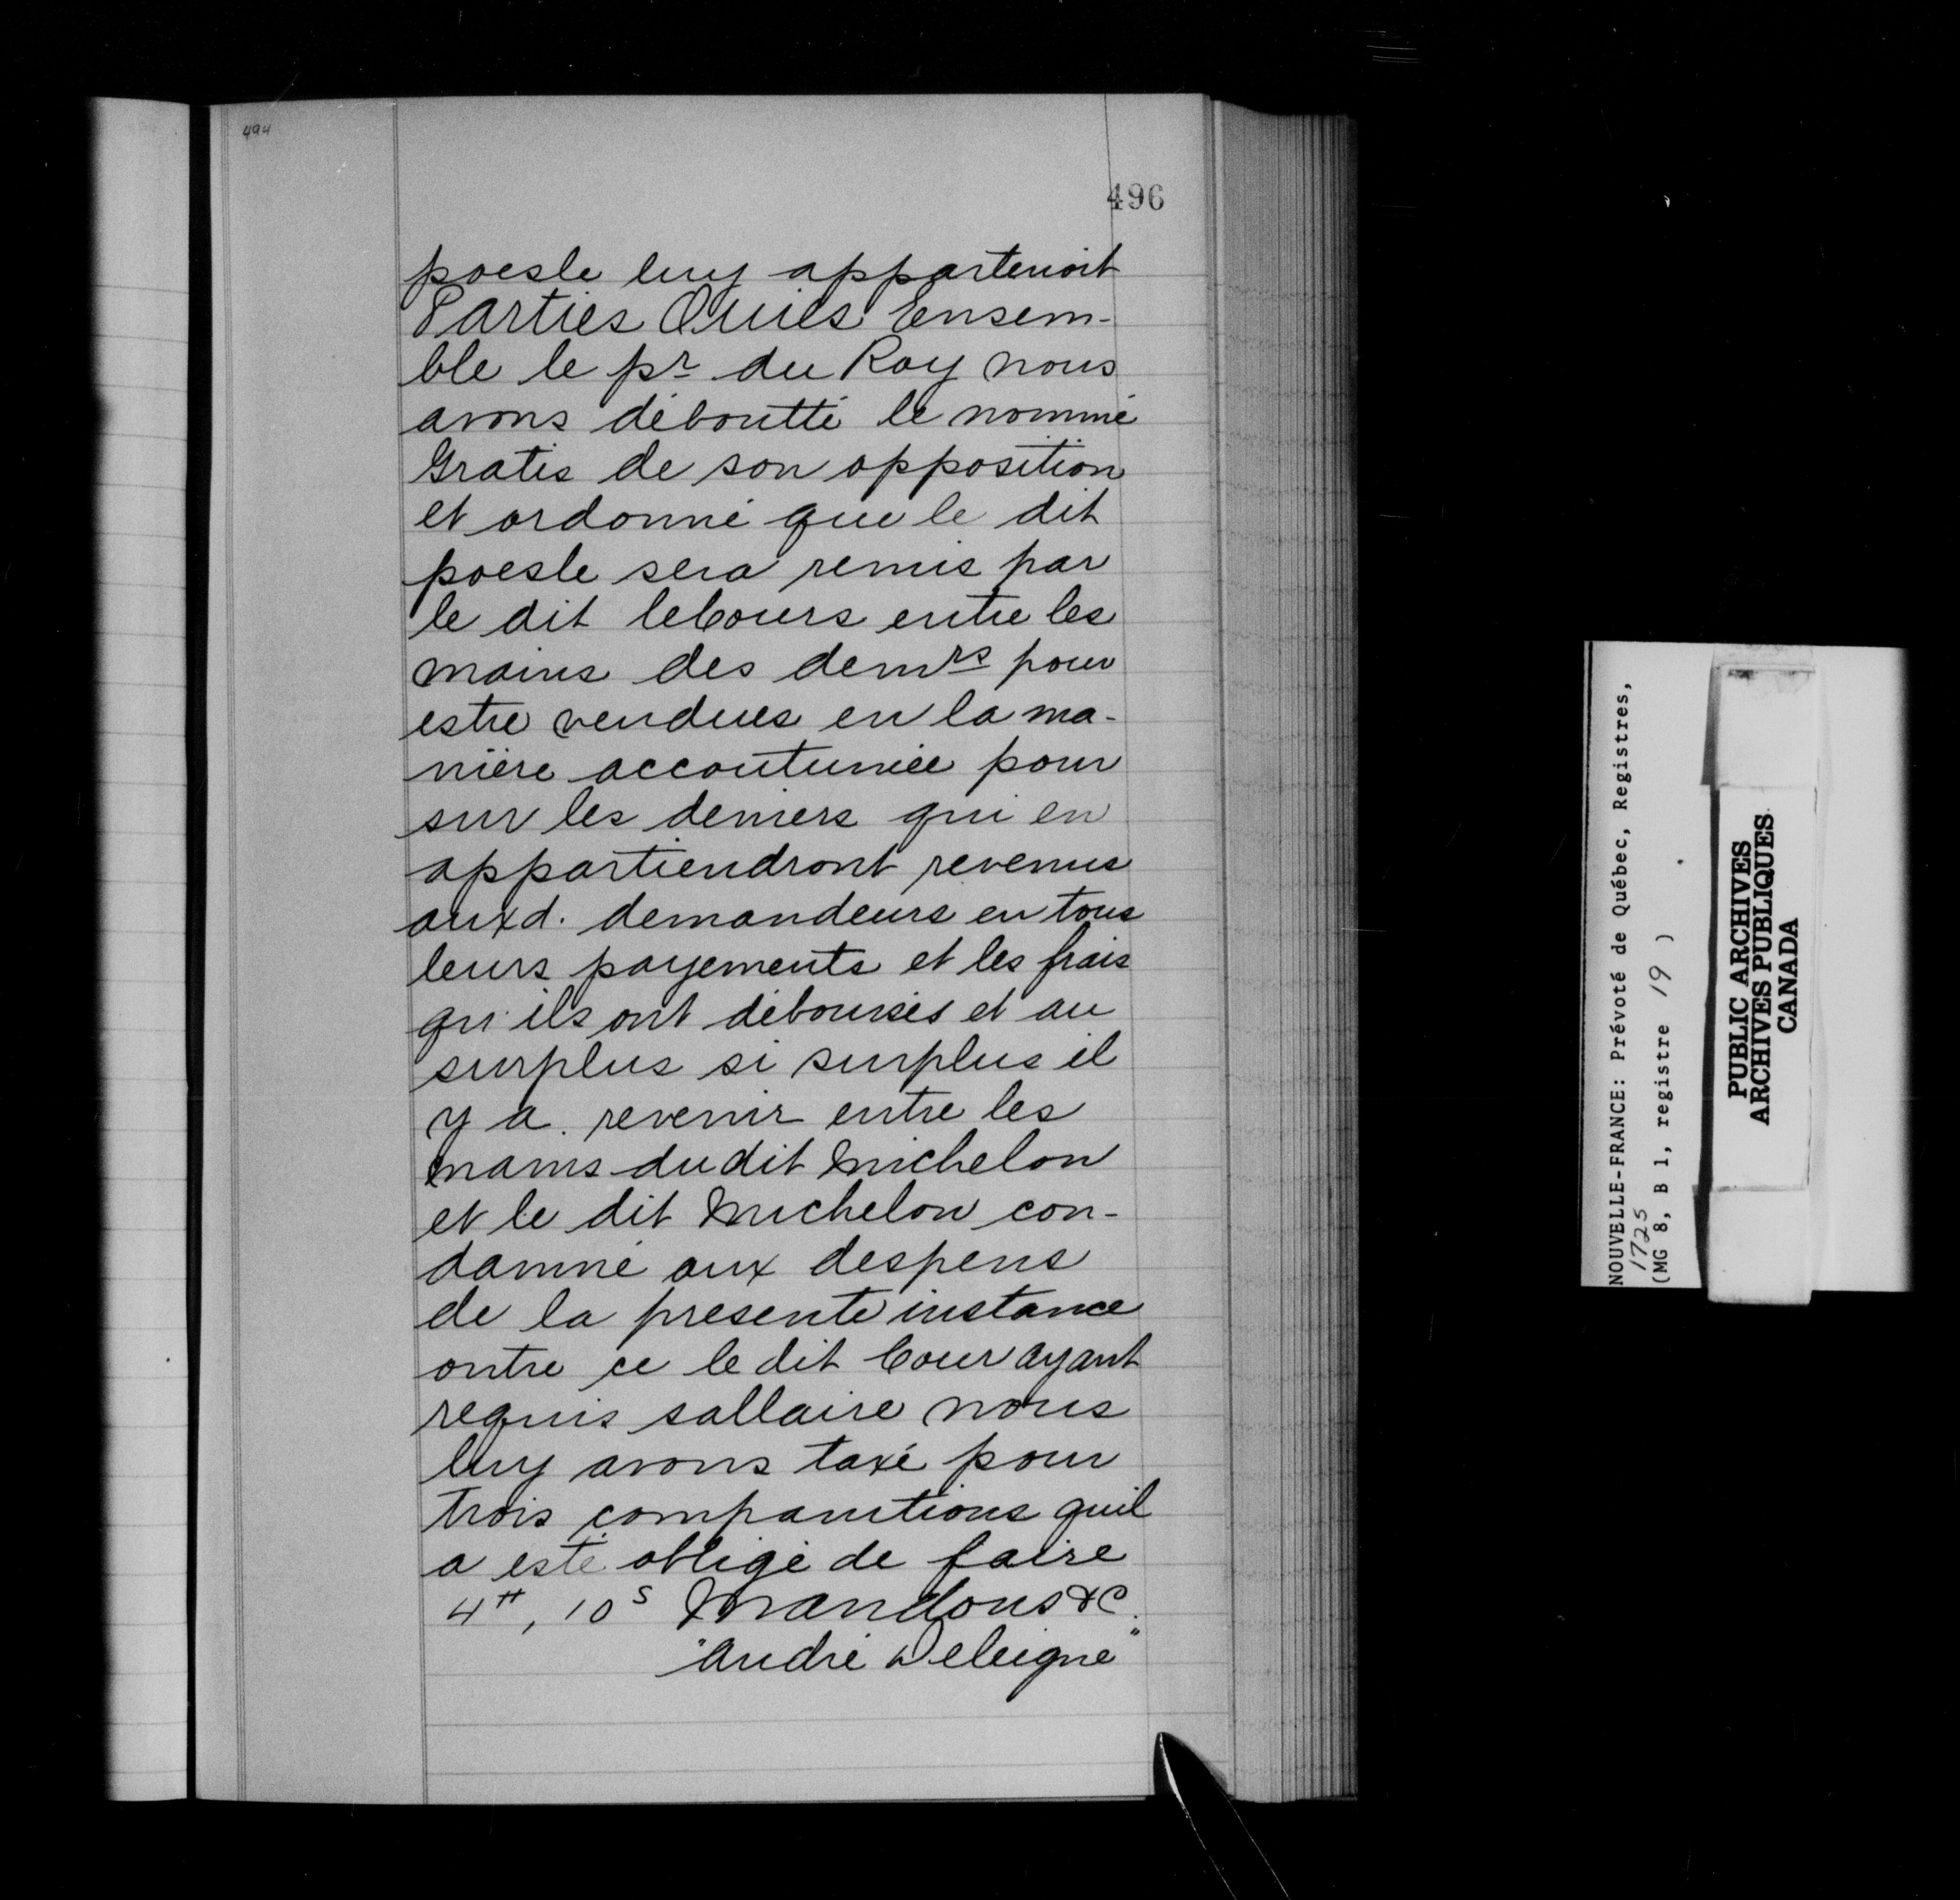 494
496
poesle luy appartenoit
Parties Ouies Ensem-
ble le pr du Roy nous
avons déboutté le nommé
Gratis de son opposition
et ordonné que le dit
poesle sera remis par
le dit lecours entre les
mains des demrs pour
estre vendues en la ma-
nière accoutumée pour
sur les deniers qui en
appartiendront revenus
auxd. demandeurs en tous
leurs payements et les frais
qu'ils ont déboursés et au
surplus si surplus il
y a revenir entre les
mains du dit Michelon
et le dit Michelon con-
damné aux despens
de la presente instance
outre ce le dit Cour ayant
requis sallaire nous
luy avons taxé pour
trois comparutions quil
a esté obligé de faire
4tt, 10s Mandons &c.
"André Deleigne"
NOUVELLE-FRANCE: Prévoté de Québec, Registres,
1725
(MG 8, B 1, registre 19 )
PUBLIC ARCHIVES
ARCHIVES PUBLIQUES
CANADA